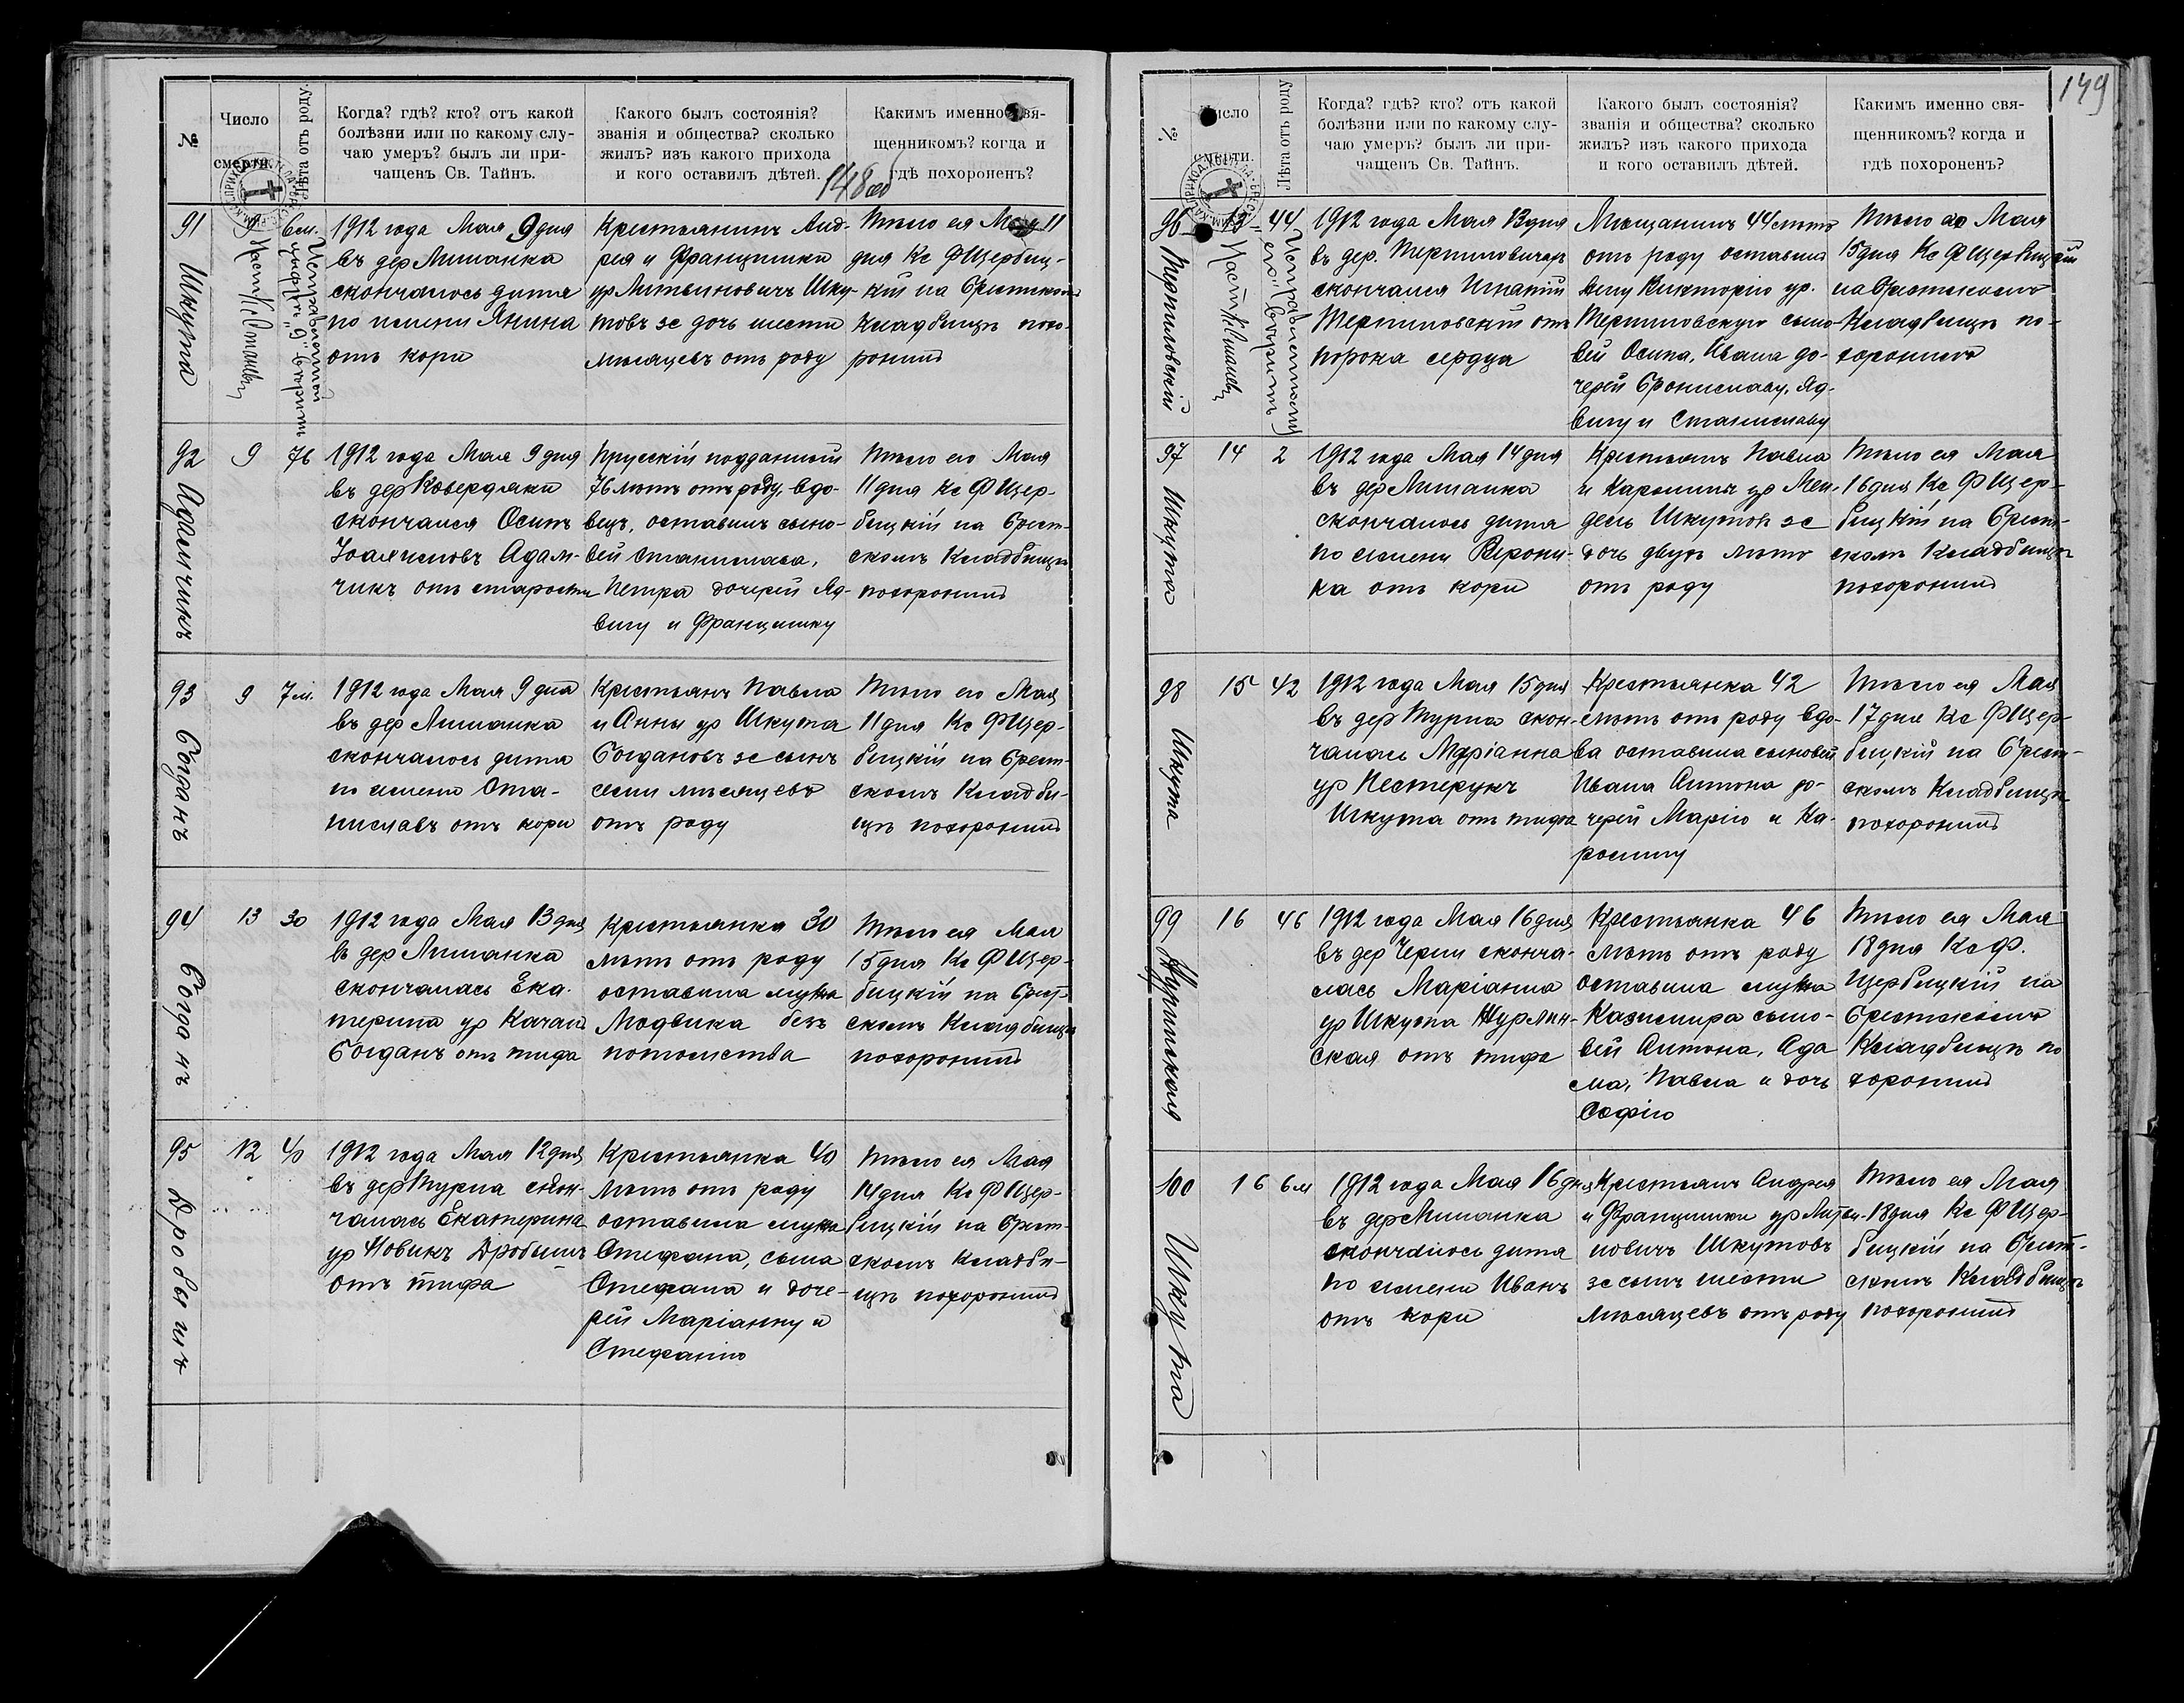 148 об
№
Число смерти.
Лѣта отъ роду.
Когда? гдѣ? кто? отъ какой
болѣзни или по какому слу-
чаю умеръ? былъ ли при-
чащенъ Св. Тайнъ.
Какого былъ состоянія?
званія и общества? сколько
жилъ? изъ какого прихода
и кого оставилъ дѣтей.
Каким именно свя-
щенникомъ? когда и
гдѣ похороненъ?
91
Шкута
9
6 м.
Исправленной
цифрѣ "9" вѣрить
1912 года Мая 9 дня
въ дер Лишанка
скончалось дитя
по имени Янина
отъ кори
Крестьянинъ Анд-
рея и Францишки
ур Литвиновичъ Шку-
товъ зс дочь шести
мѣсяцевъ отъ роду
Тѣло ея Мая 11
дня Кс Ф Щербиц-
кій на Брестскомъ
Кладбищѣ похо-
ронилъ
92
Адамчикъ
9
76
1912 года Мая 9 дня
въ дер Ковердяки
скончался Осипъ
Іоахимовъ Адам-
чикъ отъ старости
Прусскій подданный
76 лѣтъ отъ роду, вдо-
вецъ, оставилъ сыно-
вей Станислава,
Петра дочерей Яд-
вигу и Францишку
Тѣло его Мая
11 дня Кс Ф Щер-
бицкій на Брест-
скомъ Кладбищѣ
похоронилъ
93
Богданъ
9
7 м.
1912 года Мая 9 дня
въ дер Лишанка
скончалось дитя
по имени Ста-
ниславъ отъ кори
Крестьянъ Павла
и Анны ур Шкута
Богдановъ зс сынъ
семи мѣсяцевъ
отъ роду
Тѣло его Мая
11 дня Кс Ф Щер-
бицкій на Брест-
скомъ Кладби-
щѣ похоронилъ
94
Богданъ
13
30
1912 года Мая 13 дня
въ дер Лишанка
скончалась Ека-
терина ур Качан
Богданъ отъ тифа
Крестьянка 30
лѣтъ отъ роду
оставила мужа
Людвика безъ
потомства
Тѣло ея Мая
15 дня Кс Ф Щер-
бицкій на Брест-
скомъ Кладбищѣ
похоронилъ
95
Дробышъ
12
40
1912 года Мая 12 дня
въ дер Турна скон-
чалась Екатерина
ур Новикъ Дробышъ
отъ тифа
Крестьянка 40
лѣтъ отъ роду
оставила мужа
Стефана, сына
Стефана и доче-
рей Маріанну и
Стефанію
Тѣло ея Мая
14 дня Кс Ф Щер-
бицкій на Брест-
скомъ Кладби-
щѣ похоронилъ
149
№
Число смерти.
Лѣта отъ роду
Когда? гдѣ? кто? отъ какой
болѣзни или по какому слу-
чаю умеръ? былъ ли при-
чащенъ Св. Тайнъ.
Какого былъ состоянія?
званія и общества? сколько
жилъ? изъ какого прихода
и кого оставилъ дѣтей.
Каким именно свя-
щенникомъ? когда и
гдѣ похороненъ?
96
Терпиловскій
13
44
Исправленному
"его" вѣрить
1912 года Мая 13 дня
въ дер. Терпиловичах
скончался Игнатій
Терпиловскій отъ
порока сердца
Мѣщанинъ 44 лѣтъ
отъ роду оставилъ
жену Викторію ур.
Терпиловскую сыно-
вей Осипа, Ивана до-
черей Брониславу, Яд-
вигу и Станиславу
Тѣло его Мая
15 дня Кс Ф Щербицкій
на Брестскомъ
Кладбищѣ по-
хоронилъ
97
Шкута
14
2
1912 года Мая 14 дня
въ дер Лишанка
скончалось дитя
по имени Верони-
ка отъ кори
Крестьянъ Павла
и Каролины ур Мен-
дель Шкутов зс
дочь двухъ лѣтъ
отъ роду
Тѣло ея Мая
16 дня Кс Ф Щер-
бицкій на Брест-
скомъ Кладбищѣ
похоронилъ
98
Шкута
15
42
1912 года Мая 15 дня
въ дер Турна скон-
чалась Маріанна
ур Пестерукъ
Шкута отъ тифа
Крестьянка 42
лѣтъ отъ роду вдо-
ва оставила сыновей
Ивана Антона до-
черей Марію и Ка-
ролину
Тѣло ея Мая
17 дня Кс Ф Щер-
бицкій на Брест-
скомъ Кладбищѣ
похоронилъ
99
Журминская
16
46
1912 года Мая 16 дня
въ дер Черни сконча-
лась Маріанна
ур Шкута Журмин-
ская отъ тифа
Крестьянка 46
лѣтъ отъ роду
оставила мужа
Казимира сыно-
вей Антона, Ада
ма, Павла и дочь
Софію
Тѣло ея Мая
18 дня Кс Ф.
Щербицкій на
Брестскомъ
Кладбищѣ по
хоронилъ
100
Шкута
16
6 м
1912 года Мая 16 дня
въ дер Лишанка
скончалось дитя
по имени Иванъ
отъ кори
Крестьянъ Андрея
и Францишки ур Литви-
новичъ Шкутовъ
зс сынъ шести
мѣсяцевъ отъ роду
Тѣло ея Мая
18 дня Кс Ф Щер-
бицкій на Брест-
скомъ Кладбищѣ
похоронилъ